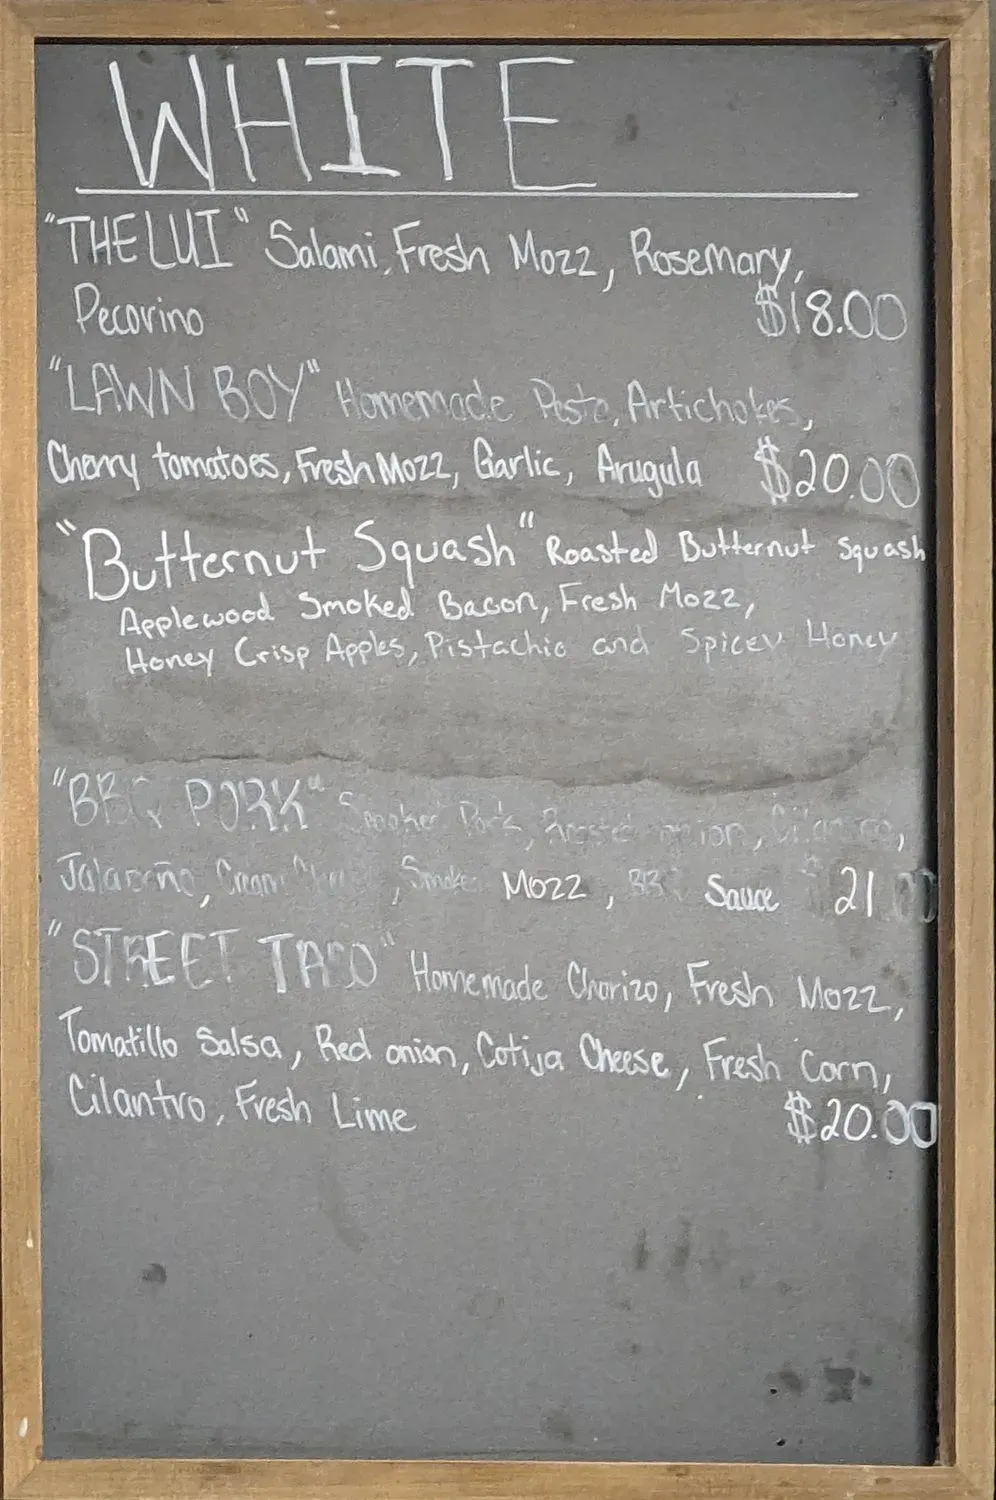 WHITE
"THE LUI" Salami, Fresh Mozz, Rosemary,
Pecorino $18.00
"LAWN BOY" Homemade Pesto, Artichokes,
Cherry tomatoes, Fresh Mozz, Garlic, Arugula $20.00
"Butternut Squash" Roasted Butternut Squash
Applewood Smoked Bacon, Fresh Mozz,
Honey Crisp Apples, Pistachio and Spicey Honey
"BBQ PORK" Smoked Pork, Roasted onion, Cilantro,
Jalapeño, Cream Cheese, Smoked Mozz, BBQ Sauce $21.00
"STREET TACO" Homemade Chorizo, Fresh Mozz,
Tomatillo Salsa, Red onion, Cotija Cheese, Fresh Corn,
Cilantro, Fresh Lime $20.00